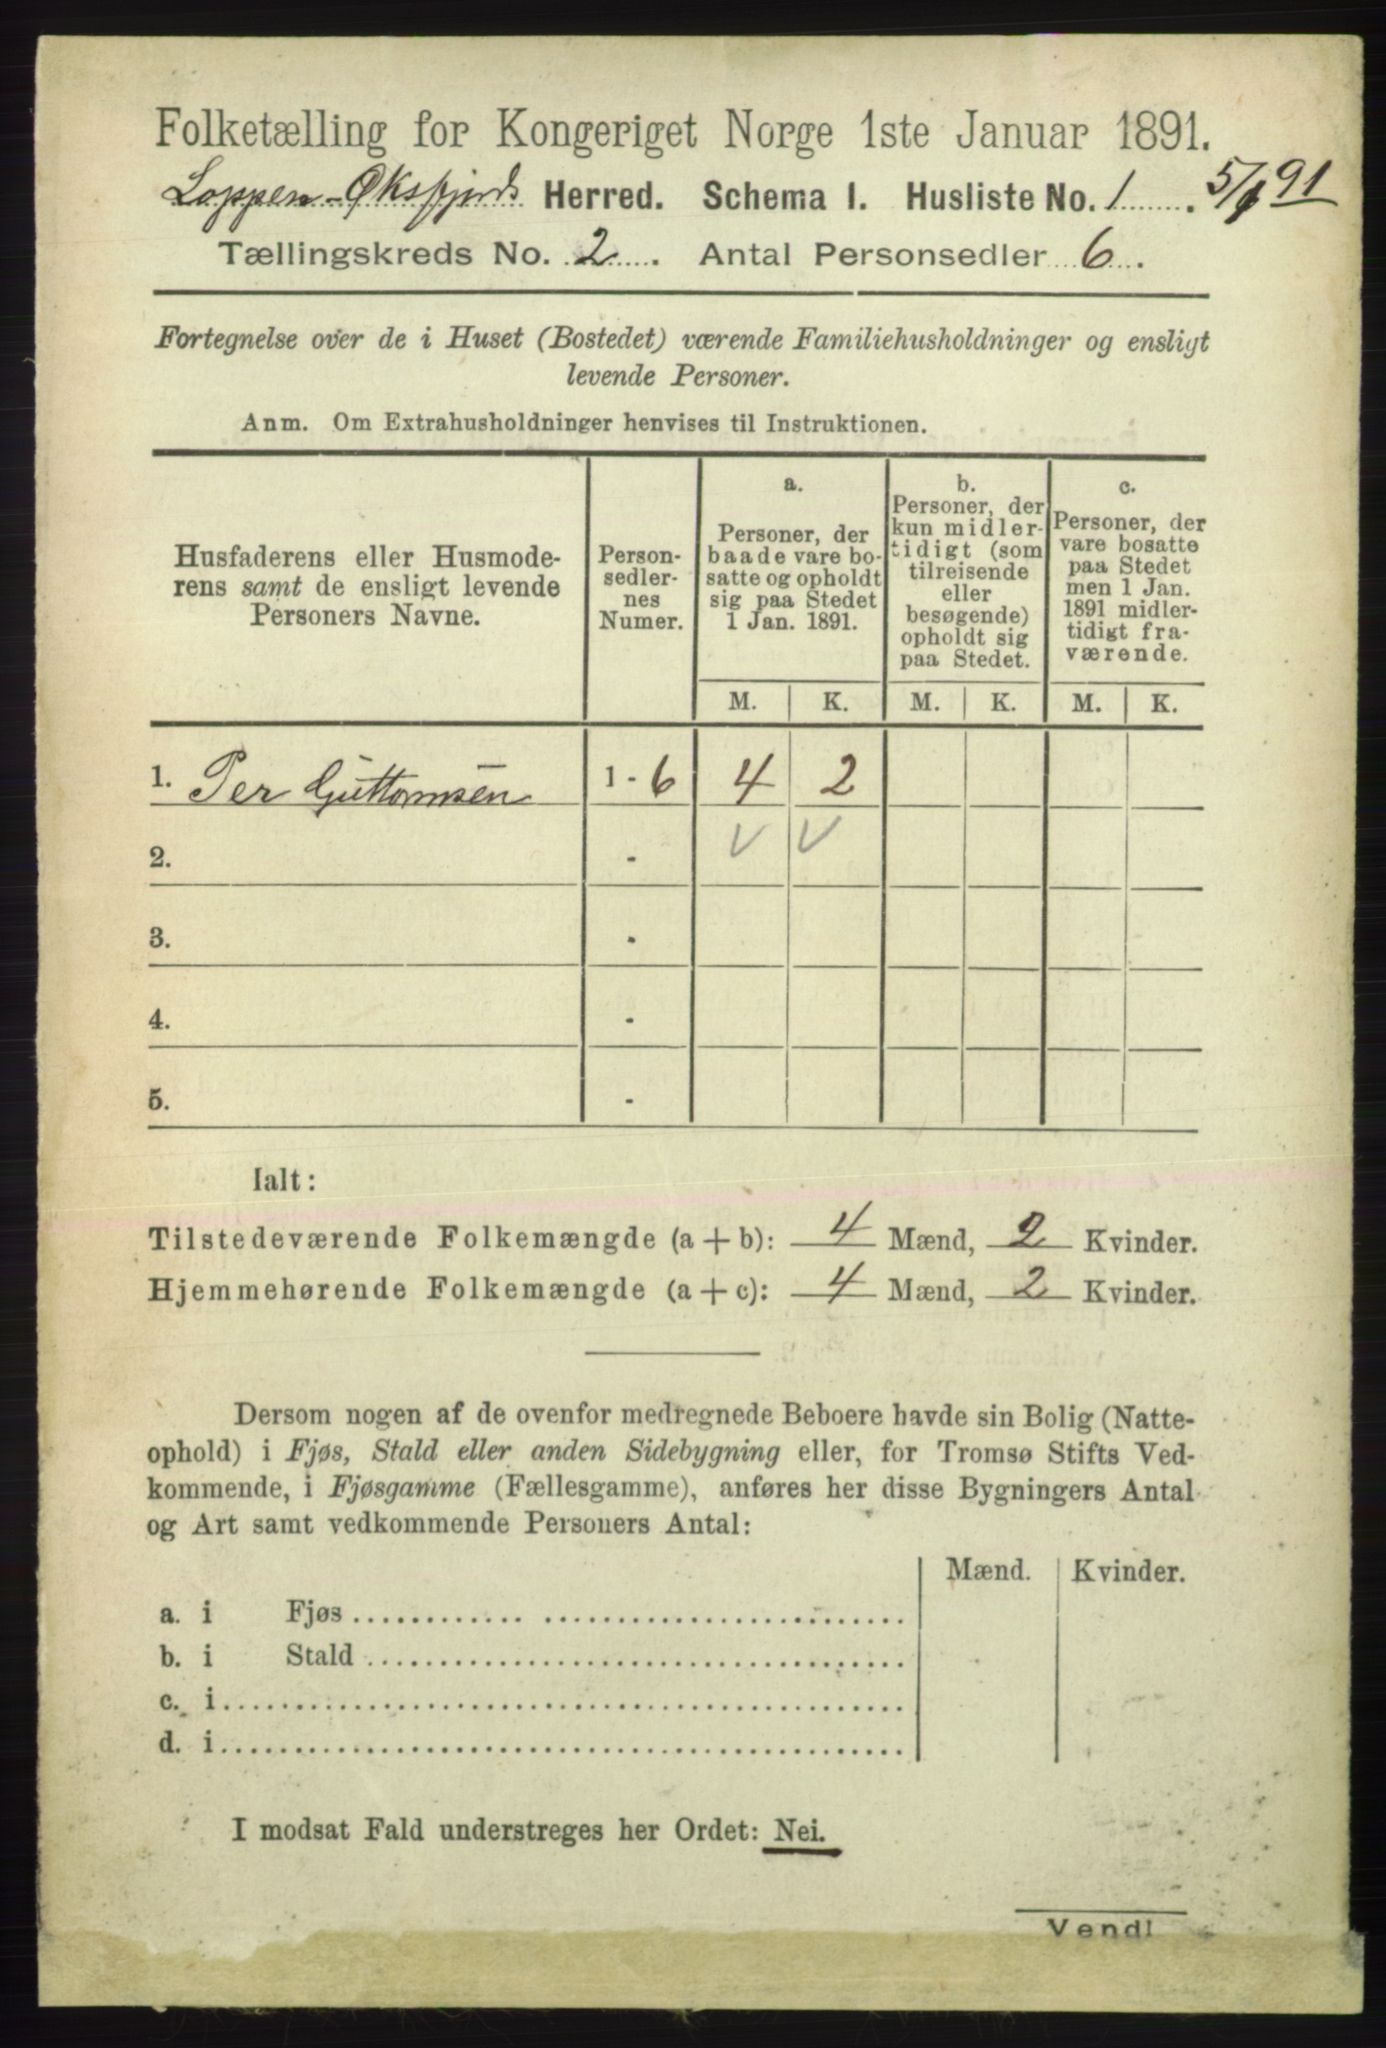 Folketælling for Kongeriget Norge 1ste Januar 1891.
Loppen-Øksfjords Herred. Schema I. Husliste No. 1. 5/1 91
Tællingskreds No. 2. Antal Personsedler 6.
Fortegnelse over de i Huset (Bostedet) værende Familiehusholdninger og ensligt
levende Personer.
Anm. Om Extrahusholdninger henvises til Instruktionen.
Husfaderens eller Husmode-
rens samt de ensligt levende
Personers Navne.
Person-
sedler-
nes
Numer.
a.
Personer, der
baade vare bo-
satte og opholdt
sig paa Stedet
1 Jan. 1891.
b.
Personer, der
kun midler-
tidigt (som
tilreisende
eller
besøgende)
opholdt sig
paa Stedet.
c.
Personer, der
vare bosatte
paa Stedet
men 1 Jan.
1891 midler-
tidigt fra-
værende.
M. K. M. K. M. K.
1. Per Guttormsen 1 - 6 4 2
2. -
3. -
4. -
5. -
Ialt:
Tilstedeværende Folkemængde (a + b): 4 Mænd, 2 Kvinder.
Hjemmehørende Folkemængde (a + c): 4 Mænd, 2 Kvinder.
Dersom nogen af de ovenfor medregnede Beboere havde sin Bolig (Natte-
ophold) i Fjøs, Stald eller anden Sidebygning eller, for Tromsø Stifts Ved-
kommende, i Fjøsgamme (Fællesgamme), anføres her disse Bygningers Antal
og Art samt vedkommende Personers Antal:
Mænd. Kvinder.
a. i Fjøs
b. i Stald
c. i
d. i
I modsat Fald understreges her Ordet: Nei.
Vend!